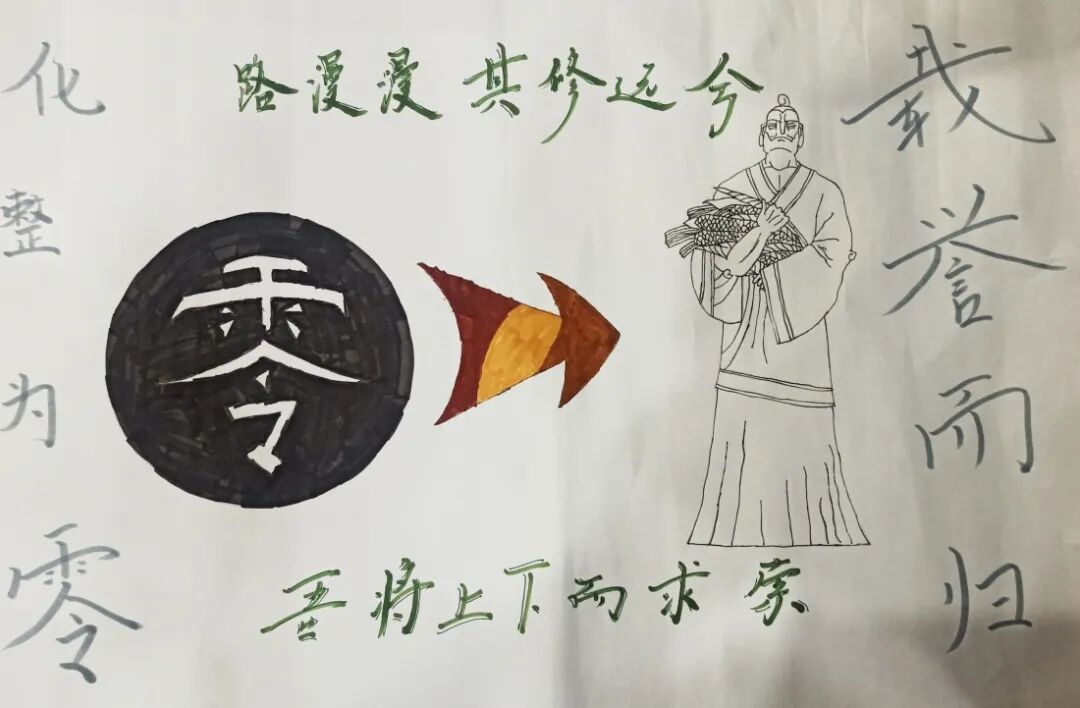 化整为零
路漫漫 其修远兮
零
吾将上下而求索
载誉而归